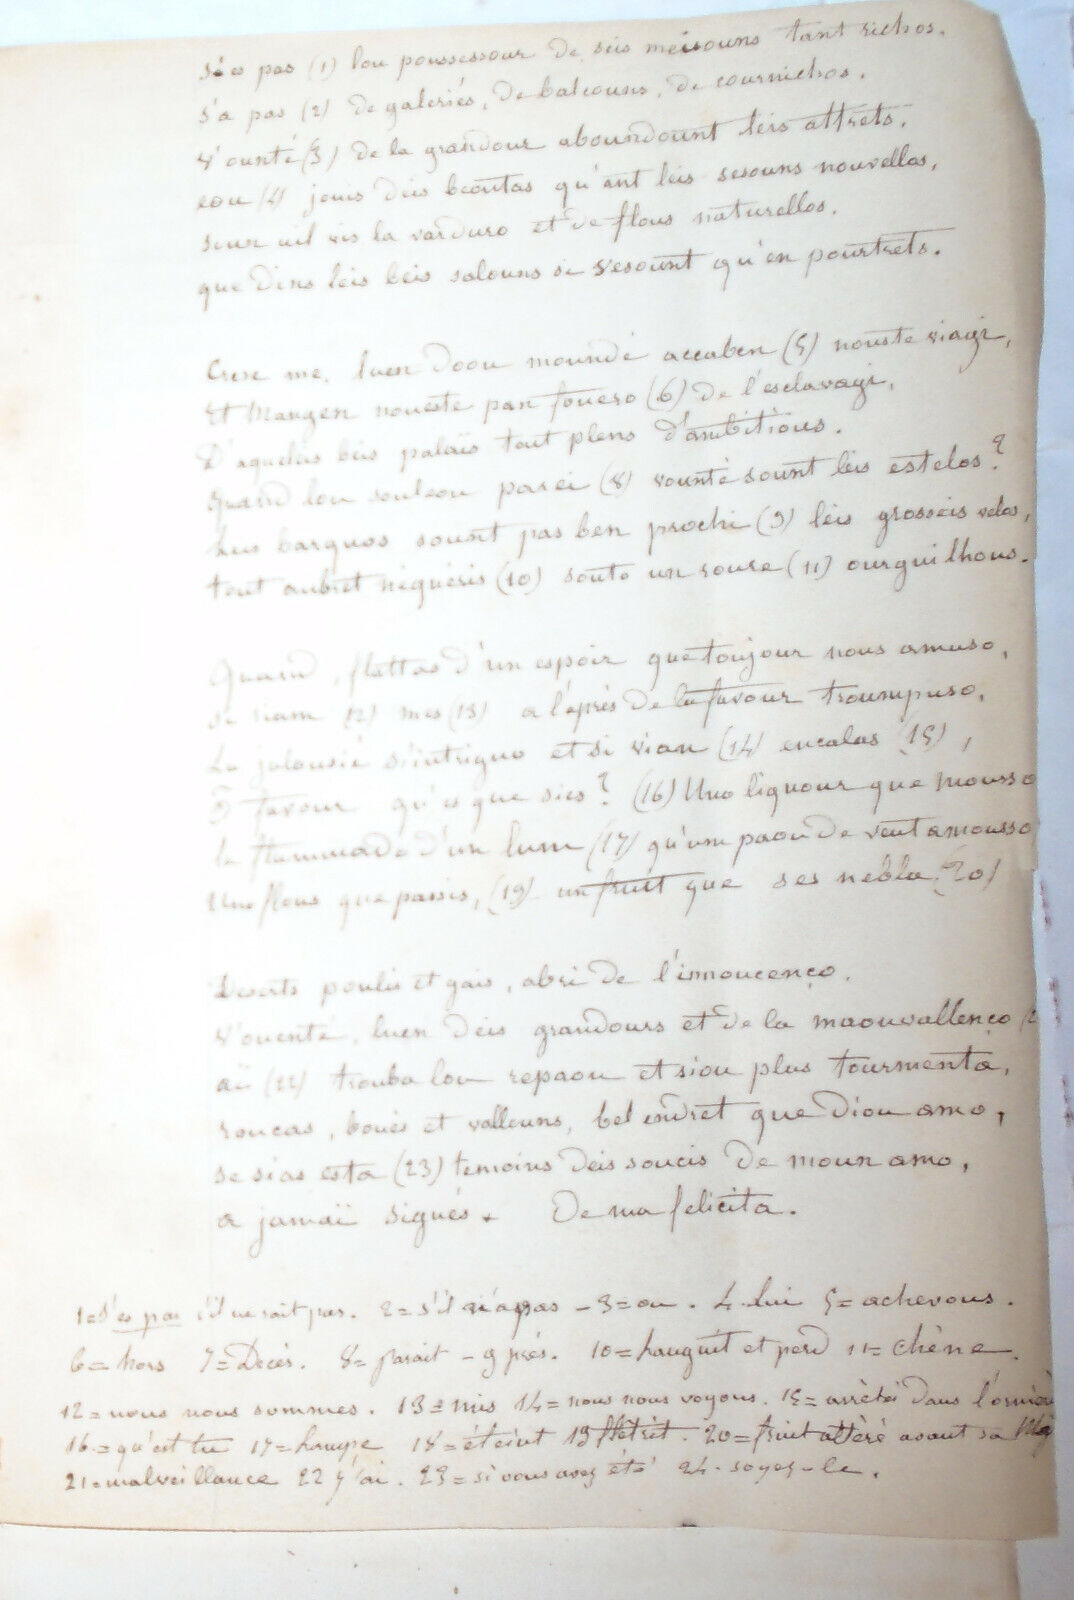 S'es pas (1) lou poussessour de seis meisouns tant richos.
S'a pas (2) de galeriés, de balcouns, de cournichos.
V'ounté (3) de la grandour aboundount leis attrets.
eou (4) jouis deis beoutas qu'ant leis sesouns nouvellos,
soun uil vis la varduro et de flous naturellos.
que dins leis beis salouns si vesount qu'en pourtrets.
Crese me, luen doou moundé accaben (5) nousté viagi,
Et Mangen nousté pan fouero (6) de l'esclavagi,
D'aquelis beis palais tout plens d'ambitious.
Quand lou souleou parei (8) vounté sount leis estelos?
Leis barquos sount pas ben prochi (9) leis grosseis velos,
tout aubret niguéris (10) souto un roure (11) ourguilhous.
Quand, flattas d'un espoir que toujour nous amuso,
si siam (12) mes (13) a l'après de la favour troumpuso,
La jalousié s'intriguo et si vian (14) encalas (15),
O favour qu'es que sies? (16) Uno liquour que mousso
la flammado d'un lum (17) qu'um paou de vent amousso
Uno flous que passis, (19) un fruit que ses nebla (20)
Deserts poulis et gais, abri de l'innoucenço.
V'ounté, luen deis grandours et de la maouvallenço (2
aï (22) trouba lou repaou et siou plus tourmenta,
roucas, boués et vallouns, bel endret que Diou amo,
se sias esta (23) temoins deis soucis de moun amo,
a jamaï sigués. De ma felicita.
1=S'es pas s'il ne soit pas. 2= s'il n'a pas - 3= ou. 4. lui 5= achevons.
6= hors 7= Decés. 8= parait - 9 près. 10= languit et perd 11= chêne.
12= nous nous sommes. 13= mis 14= nous nous voyons. 15= arrêtés dans l'ornière
16= qu'est tu 17= lampe 18= éteint 19 flétrit. 20= fruit altéré avant sa
21= malveillance 22 j'ai. 23= si vous avez été 24- soyez-le.